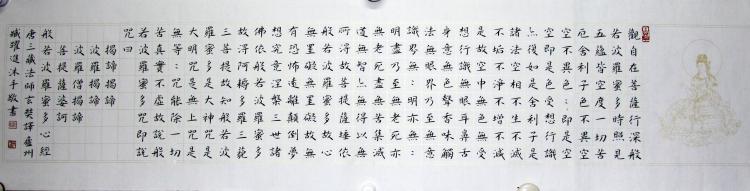 觀自在菩薩行深般
若波羅蜜多時照見
五蘊皆空度一切苦
厄舍利子色不異空
空不異色:即是空
空即是色受想行識
亦復如是舍利子是
諸法空相不生不滅
不垢不淨不增不減
是故空中無色無受
想行識無眼耳鼻舌
身意無色聲香味觸
法無眼界乃至無意
識界無:明亦無:
明盡乃至無老死亦:
無老死盡無苦集滅
道無智亦無得以無
所得故菩提薩埵依
般若波羅蜜多故心
無罣礙無罣礙故無
有恐怖遠離顛倒夢
想究竟涅槃三世諸
佛依般若波羅蜜多
故得阿耨多羅三藐
三菩提故知般若波
羅蜜多是大神咒是
大明咒是無上咒是
無等:咒能除一切
苦真實不虛故說般
若波羅蜜多咒即說
咒曰
揭諦揭諦
波羅揭諦
波羅僧揭諦
菩提薩婆訶
般若波羅蜜多心經
唐三藏法師玄奘譯瀘州
臧躍進沐手敬書